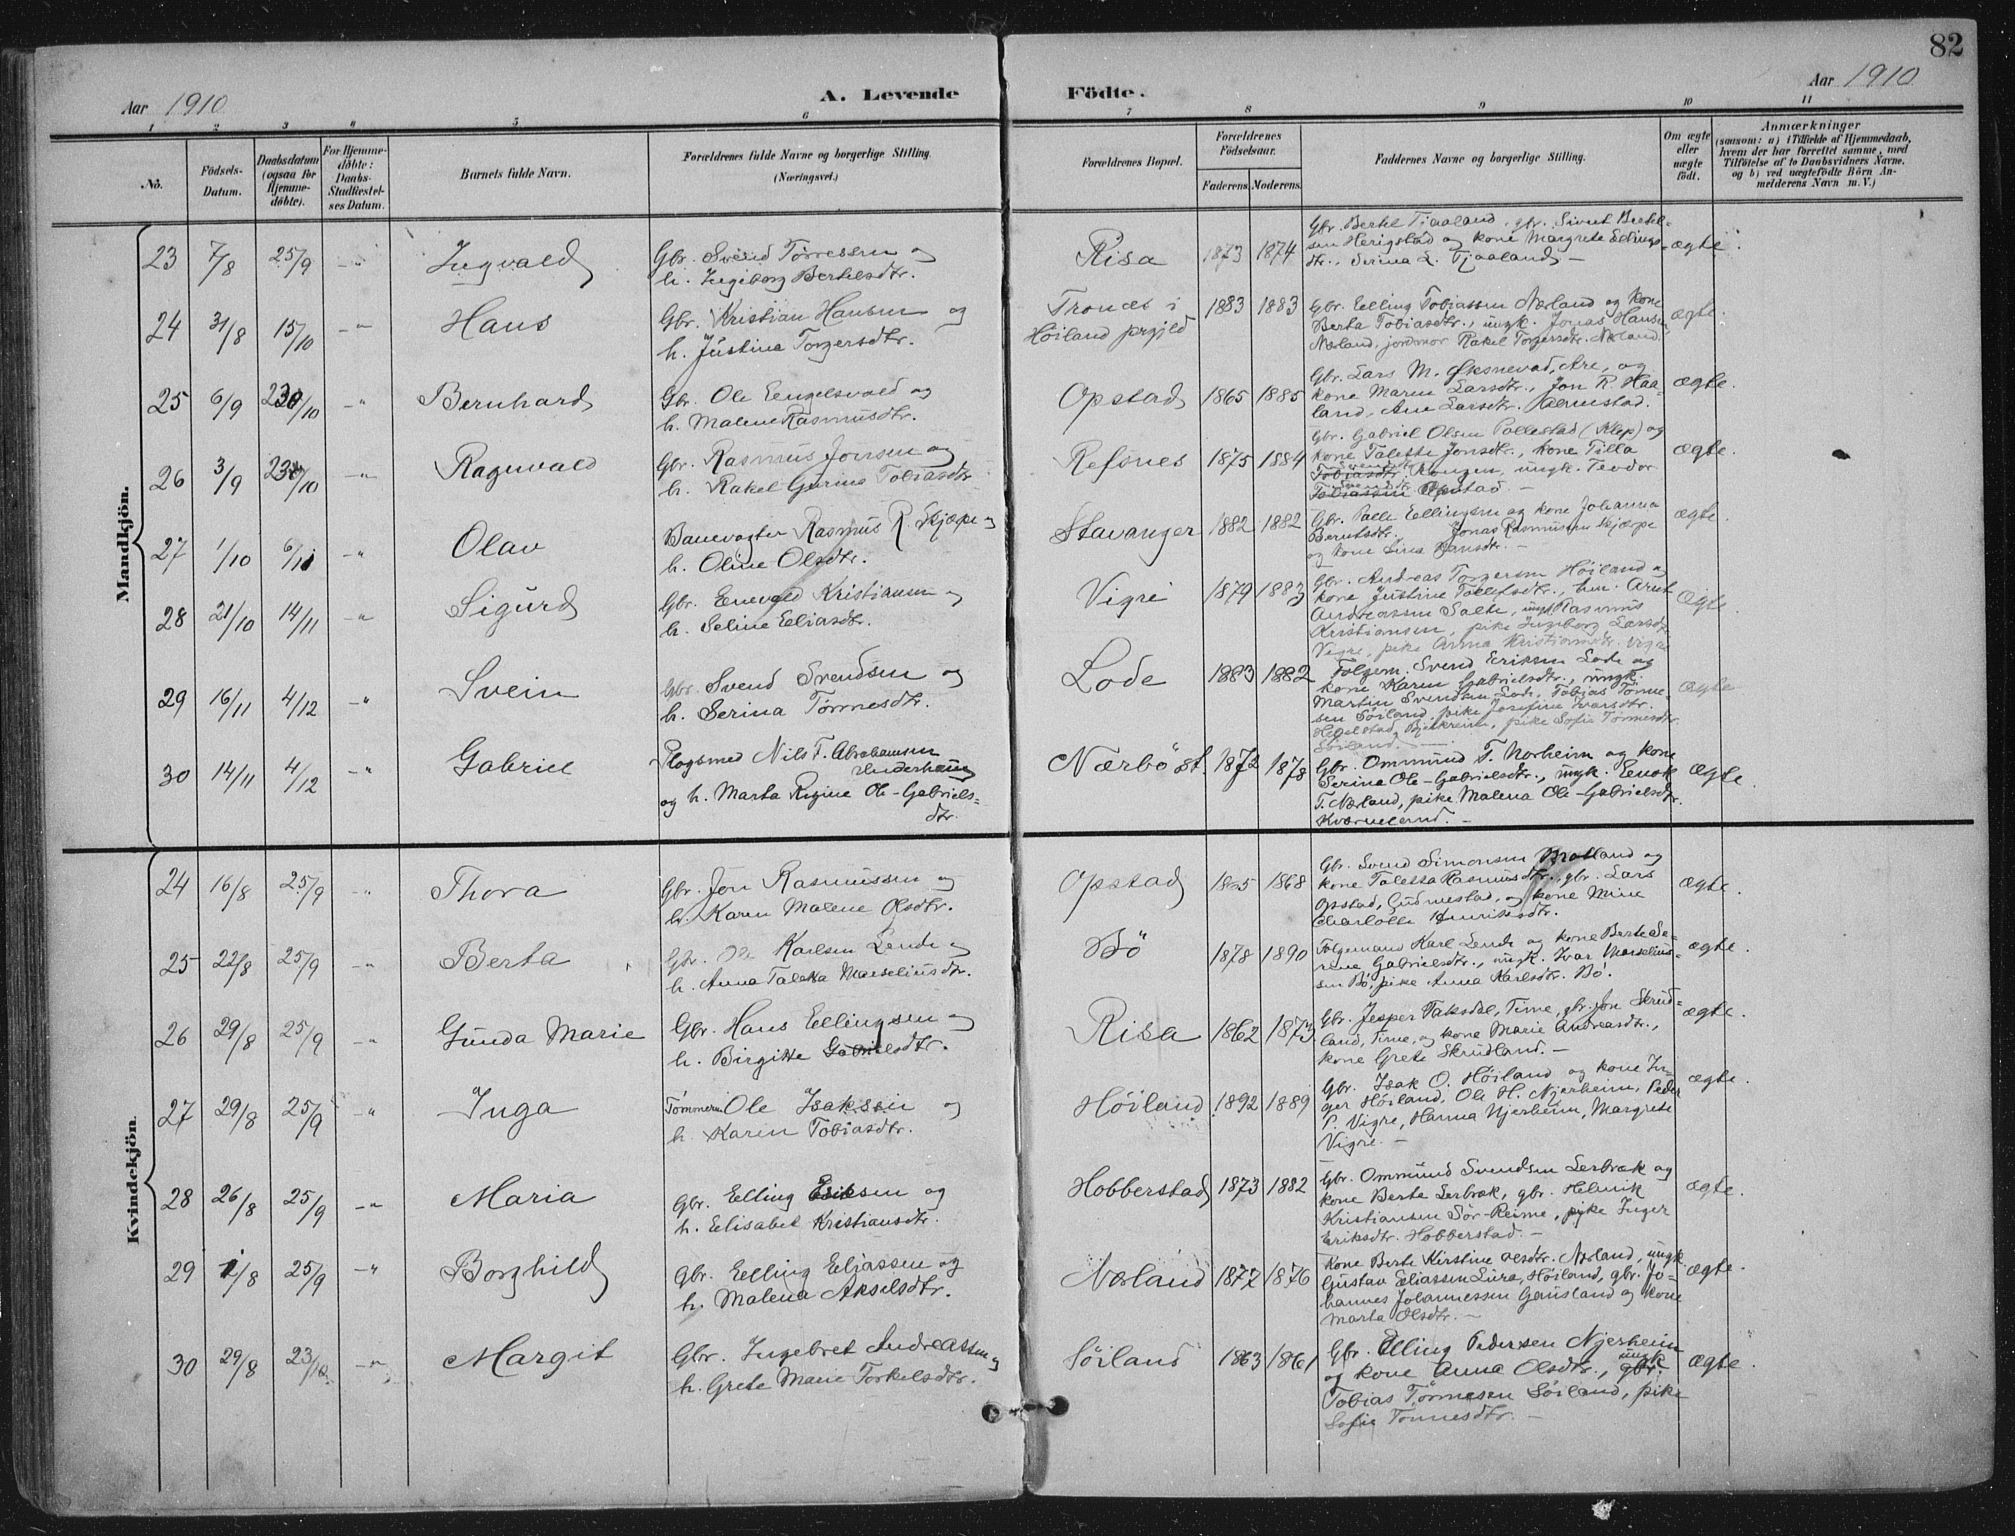 82
Aar 1910
A. Levende Födte.
Aar 1910
1 2 3 4 5 6 7 8 9 10 11
No.
Födsels-Datum.
Daabsdatum (ogsaa for Hjemme-döbte).
For Hjemme-döbte: Daabs-Stadfæstel-ses Datum.
Barnets fulde Navn.
Forældrenes fulde Navne og borgerlige Stilling.
(Næringsvei.)
Forældrenes Bopæl.
Forældrenes Födselsaar.
Faderens. Moderens.
Faddernes Navne og borgerlige Stilling.
Om ægte eller uægte födt.
Anmærkninger
(saasom: a) i Tilfælde af Hjemmedaab, hvem der har forrettet samme, med Tilföielse af to Daabsvidners Navne. og b) ved uægtefödte Börn An-melderens Navn m. V.)
Mandkjön.
23 7/8 25/9 -"- Ingvald
Gbr. Svend Törressen og
h. Ingeborg Bertelsdtr.
Risa 1873 1874
Gbr. Bertel Tjaaland, gbr. Sivert Bertel-
sen Herigstad og kone Margrete Ellings-
dtr., Serina L. Tjaaland. –
ægte.
24 31/8 15/10 -"- Hans
Gbr. Kristian Hansen og
h. Justine Torgersdtr.
Tronæs i
Höiland prgjld 1883 1883
Gbr. Elling Tobiassen Nærland og kone
Berta Tobiasdtr., ungk. Jonas Hansen
Nærland, jordmor Rakel Torgersdtr. Nærland.
ægte.
25 6/9 /10 -"- Bernhard
Gbr. Ole Eengelsvold og
h. Malene Rasmusdtr.
Opstad 1865 1885
Gbr. Lars M. Öksnevad, Are, og
kone Maren Larsdtr., Jon R. Haa-
land, Ane Larsdtr.
ægte.
26 3/9 /10 -"- Ragnvald
Gbr. Rasmus Jonsen og
h. Rakel Gurine Tobiasdtr
Refsnes 1875 1884
Gbr. Gabriel Olsen Pollestad (Klep) og
kone Talette Jonsdtr., kone Tilla
Tobiasdtr. Kongen, ungk. Teodor
Tobiassen Opstad. –
ægte.
27 1/10 6/11 -"- Olav
Banevogter Rasmus R. Skjæpe og
h. Oline Olsdtr.
Stavanger 1882 1882
Gbr. Palle Ellingsen og kone Johanna
Berntsdtr. Jonas Rasmussen Skjæpe
og kone Lina Hansdtr. –
ægte.
28 21/10 14/11 -"- Sigurd
Gbr. Enevald Kristiansen og
h. Seline Eliasdtr.
Vigre 1879 1883
Gbr. Andreas Torgersen Höiland og
kone Justine Tollefsdtr., Arnt
Andreassen Salte, ungk. Rasmus
Kristiansen, pike Ingeborg Larsdtr.
Vigre, pike Anna Kristiansdtr. Vigre
ægte.
29 16/11 4/12 -"- Svein
Gbr. Svend Svendsen og
h. Serina Tönnesdtr.
Lode 1883 1882
Folgem. Svend Eriksen Lode og
kone Karen Gabrielsdtr., ungk.
Martin Svendsen Lode, Tobias Tönne-
sen Söiland, pike Josefine Ivarsdtr.
Bjerkreim, pike Sofie Tönnesdtr.
Söiland. –
ægte
30 14/11 4/12 -"- Gabriel
Plogsmed Nils T. Abrahamsen
Underhaug
og h. Marta Regine Ole-Gabriels-
dtr.
Nærbö st. 1872 1878
Gbr. Ommund T. Norheim og kone
Serina Ole-Gabrielsdtr., ungk. Enok
T. Nærland, pike Malena Ole-Gabrielsdtr.
Kværneland. –
ægte.
Kvindekjön.
24 16/8 25/9 -"- Thora
Gbr. Jon Rasmussen og
h. Karen Malene Olsdtr.
Opstad 1868
Gbr. Svend Simonsen Bratland og
kone Taletta Rasmusdtr., gbr. Lars
Opstad, Gudmestad, og kone Mine
Charlotte Henriksdtr.
ægte.
25 22/8 25/9 -"- Berta
Gbr. Ole Karlsen Lende og
h. Anna Taletta Marseliusdtr.
Bö 1878 1890
Folgemand Karl Lende og kone Berte Se-
rine Gabrielsdtr., ungk. Ivar Marselius-
sen Bö, pike Anna Karlsdtr. Bö.
ægte.
26 29/8 25/9 -"- Gunda Marie
Gbr. Hans Ellingsen og
h. Birgitte Gabrielsdtr.
Risa 1862 1873
Gbr. Jesper Taksdal, Time, gbr. Jon Skrud-
land, Time, og kone Marie Andreasdtr.,
kone Grete Skrudland. –
ægte.
27 29/8 25/9 -"- Inga
Tömmerm. Ole Isaksen og
h. Karen Tobiasdtr.
Höiland 1892 1889
Gbr. Isak O. Höiland og kone In-
ger Höiland, Ole H. Njerheim, Peder
P. Vigre, Hanna Njerheim, Margrete
Vigre. –
ægte.
28 26/8 25/9 -"- Maria
Gbr. Elling Eriksen og
h. Elisabet Kristiansdtr.
Hobberstad 1873 1882
Gbr. Ommund Svendsen Lerbræk og
kone Berte Lerbræk, gbr. Helmik
Kristiansen Sör-Reime, pike Inger
Eriksdtr. Hobberstad. –
ægte.
29 /8 25/9 -"- Borghild
Gbr. Elling Eliassen og
h. Malena Akselsdtr.
Nærland 1877 1876
Kone Berte Kirstine Olsdtr. Nærland, ungk
Gustav Eliassen Lura, Höiland, gbr. Jo-
hannes Johannessen Gausland og kone
Marta Olsdtr. –
ægte.
30 29/8 23/10 -"- Margit
Gbr. Ingebret Andreassen og
h. Grete Marie Torkelsdtr.
Söiland 1863 1861
Gbr. Elling Pedersen Njerheim
og kone Anna Olsdtr., ungk. gbr.
Tobias Tönnesen Söiland, pike
Sofie Tönnesdtr. –
ægte.